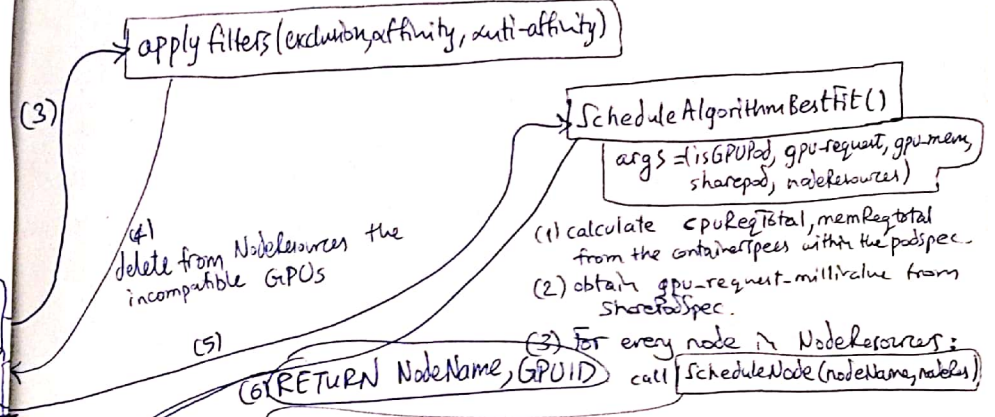 apply filters (exclusion, affinity, anti-affinity)
(3)
ScheduleAlgorithmBestFit()
args = (isGPUPod, gpu-request, gpu-mem,
sharepod, nodeResources)
(4)
delete from NodeResources the
incompatible GPUs
(1) calculate cpuReqTotal, memReqtotal
from the containerspecs within the podspec.
(2) obtain gpu-request-millivalue from
SharePodSpec.
(5)
(3) For every node in NodeResources:
call ScheduleNode(nodeName, nodeRes)
(6) RETURN NodeName, GPUID